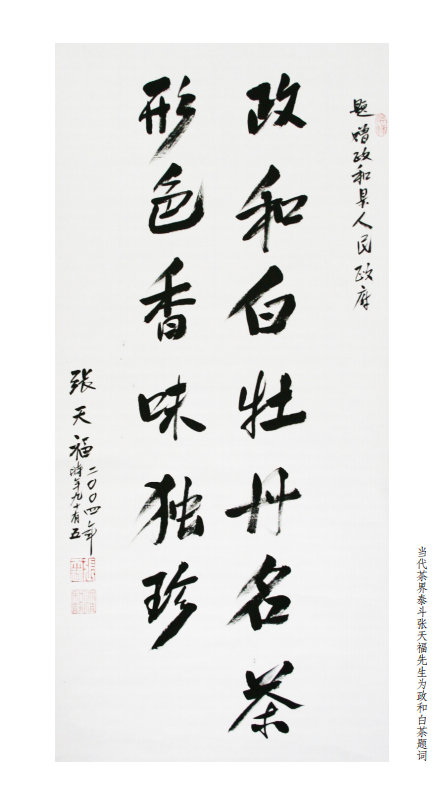 题赠政和县人民政府
政和白牡丹名茶
形色香味独珍
张天福
二〇〇四年
时年九十有五
当代茶界泰斗张天福先生为政和白茶题词